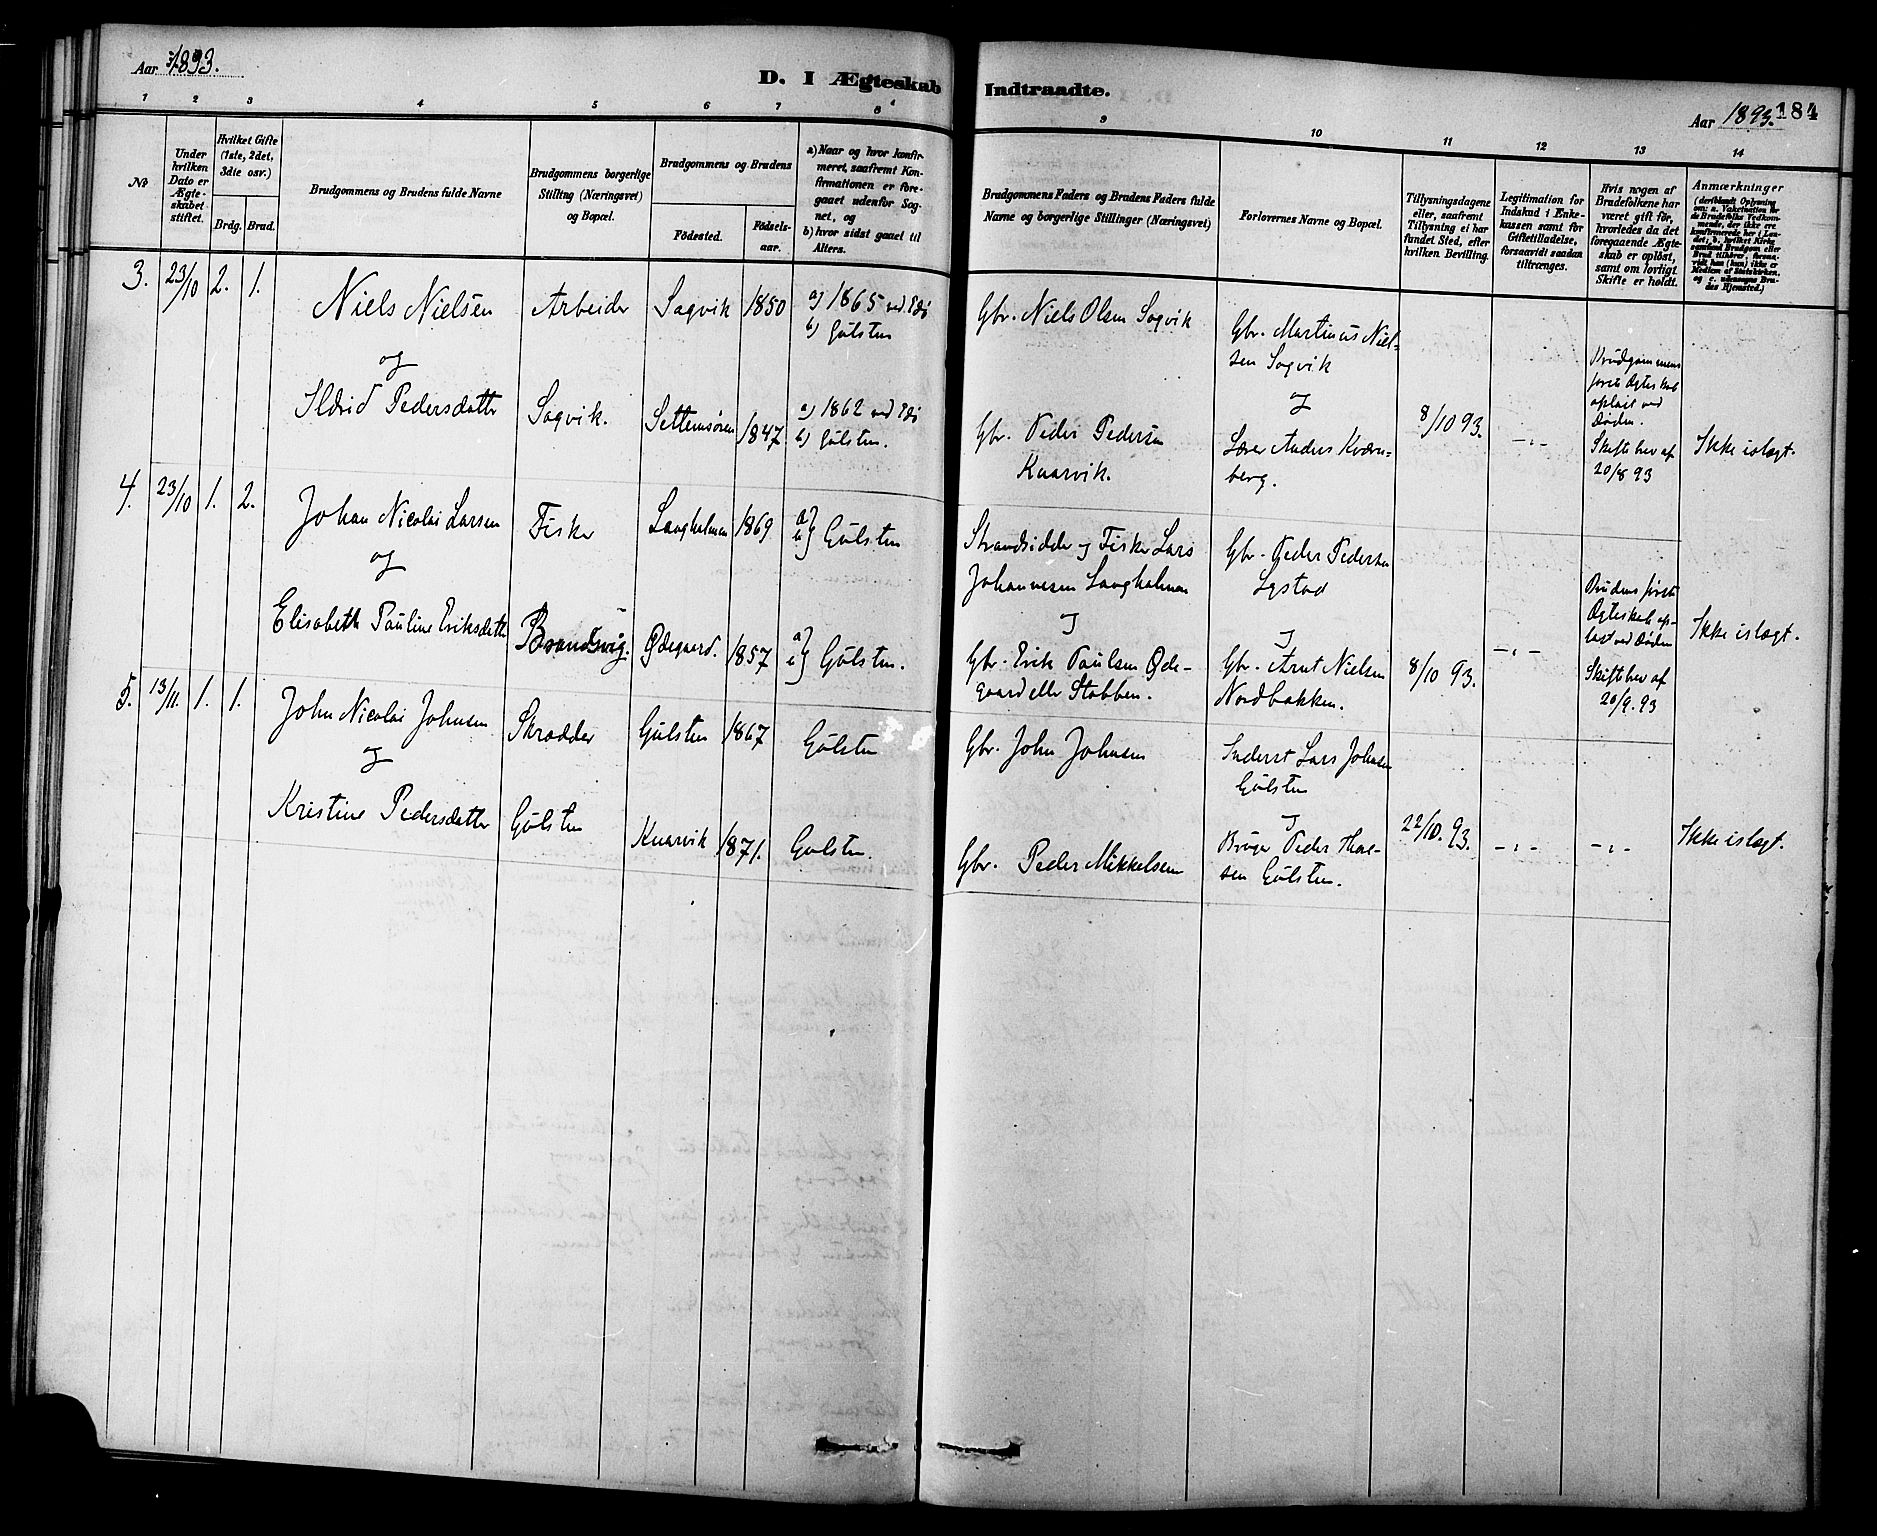 Aar 1893.
D. I Ægteskab Indtraadte.
Aar 1893.
184
1 2 3 4 5 6 7 8 9 10 11 12 13 14
№
Under hvilken Dato er Ægteskabet stiftet.
Hvilket Gifte (1ste, 2det, 3die osv.)
Brdg. Brud.
Brudgommens og Brudens fulde Navne
Brudgommens borgerlige Stilling (Næringsvei) og Bopæl.
Brudgommens og Brudens
Fødested.
Fødselsaar.
a) Naar og hvor konfirmeret, saafremt Konfirmationen er foregaaet udenfor Sognet, og
b) hvor sidst gaaet til Alters.
Brudgommens Faders og Brudens Faders fulde Navne og borgerlige Stillinger (Næringsvei)
Forlovernes Navne og Bopæl.
Tillysningsdagene eller, saafremt Tillysning ei har fundet Sted, efter hvilken Bevilling.
Legitimation for Indskud i Enkekassen samt for Giftetilladelse, forsaavidt saadan tiltrænges.
Hvis nogen af Brudefolkene har været gift før, hvorledes da det foregaaende Ægteskab er opløst, samt om lovligt Skifte er holdt.
Anmærkninger
3. 23/10 2. 1.
Niels Nielsen
og
Ildrid Pedersdatter
Arbeider
Sagvik.
Sagvik 1850
Settemsøren 1847.
a) 1865 ved Edø
b) Gulsten
a) 1862 ved Edø
b) Gulsten.
Gbr. Niels Olsen Sagvik
Gbr. Peder Pedersen
Kaarvik.
Gbr. Martinus Niel-
sen Sagvik
og
Lærer Anders Kvern-
berg.
8/10 93.
-„-
Brudgommens
første Ægteskab
opløst ved
Døden.
Skiftebrev af
20/8 93
Ikke islagt.
4. 23/10 1. 2.
Johan Nicolai Larsen
og
Elisabeth Pauline Eriksdatter
Fisker
Brandsvig.
Langholmen 1869
Ødegaard. 1857
a) b) Gulsten
a) b) Gulsten.
Strandsidder og Fisker Lars
Johannesen Langholmen
og
Gbr. Erik Paulsen Øde-
gaard eller Stobben.
Gbr. Peder Pedersen
Lystad
og
Gbr. Arnt Nielsen
Nordbakken.
8/10 93.
-„-
Brudens første
Ægteskab op-
løst ved Døden
Skiftebrev af
20/9. 93
Ikke islagt.
5. 13/11. 1. 1.
John Nicolai Johnsen
og
Kristine Pedersdatter
Skrædder
Gulsten
Gulsten 1867
Kaarvik 1871.
Gulsten
Gulsten.
Gbr. John Johnsen
Gbr. Peder Mikkelsen
Inderst Lars Johnsen
Gulsten
og
Bruger Peder Thor-
sen Gulsten.
22/10. 93.
-„-
-„-
Ikke islagt.